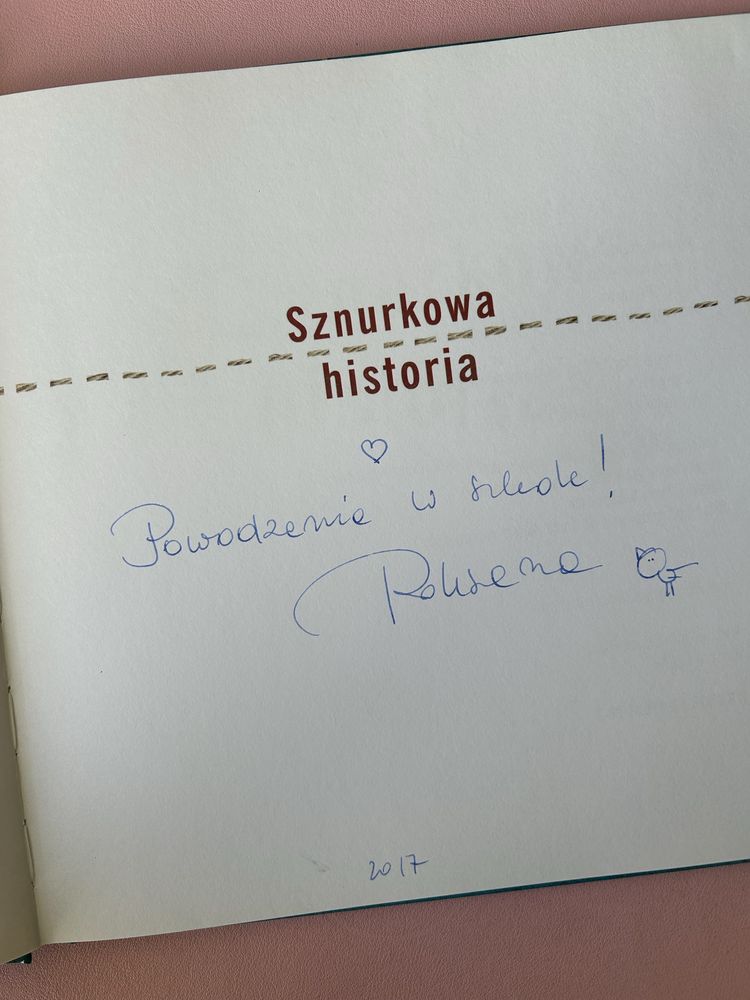 Sznurkowa
historia
Powodzenia w szkole!
Roksana
2017